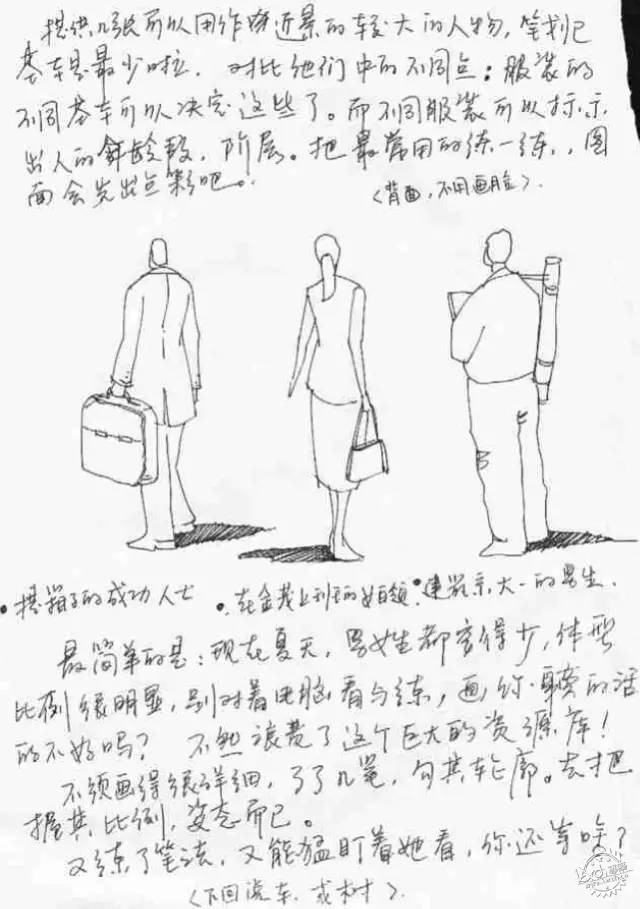 提供几张可以用作近景的较大的人物，笔划已
基本是最少啦．对比他们中的不同点：服装的
不同基本可以决定这些了。而不同服装可以标示
出人的年龄段，阶层。把最常用的练一练，图
面会出点彩吧。
〈背面，不用画脸〉．
•提箱子的成功人士
•在金茂上班的白领
•建筑系大一的男生．
最简单的是：现在夏天，男女生都穿得少，体型
比例很明显，别对着电脑看与练，画你旁的活
的不好吗？ 不然浪费了这个巨大的资源库！
不须画得很详细，了了几笔，勾其轮廓。去把
握其比例，姿态而已。
又练了笔法，又能猛盯着她看，你还等啥？
〈下回说车．或树〉．